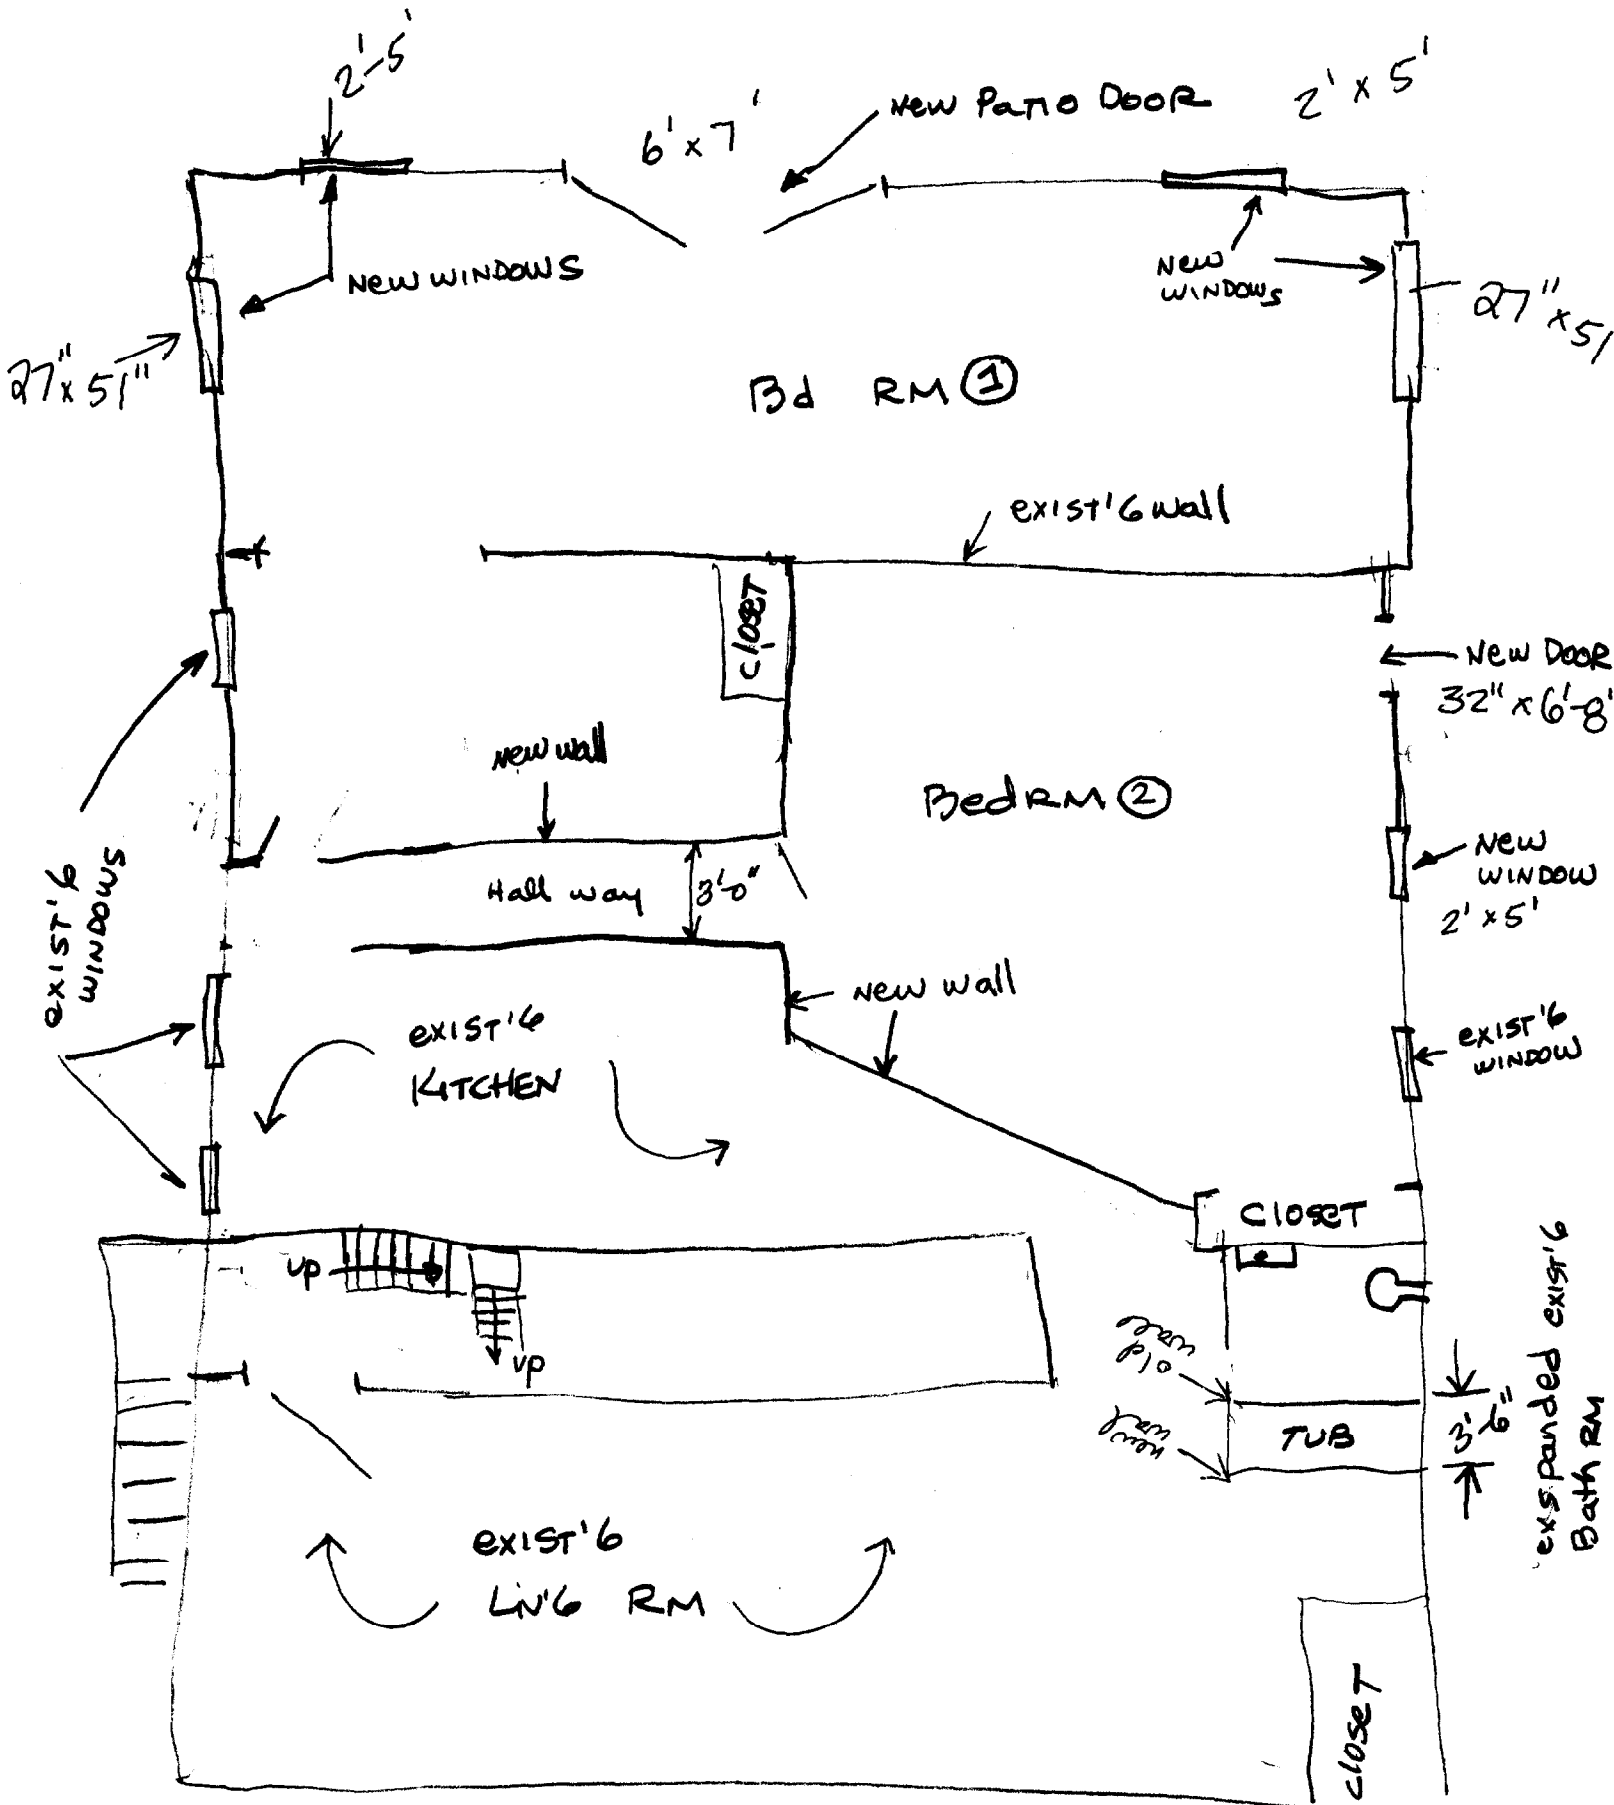 2'-5'
6' x 7'
New Patio Door
2' x 5'
New windows
New
windows
27" x 51"
27" x 51
Bd RM ①
exist'G wall
closet
New Door
32" x 6'-8'
New wall
BedRM ②
New
window
2' x 5'
exist'G
windows
Hall way
3'-0"
New wall
exist'G
KITCHEN
exist'G
window
closet
up
up
old
wall
new
wall
TUB
3'-6"
exspanded exist'G
Bath RM
exist'G
LIV'G RM
closet